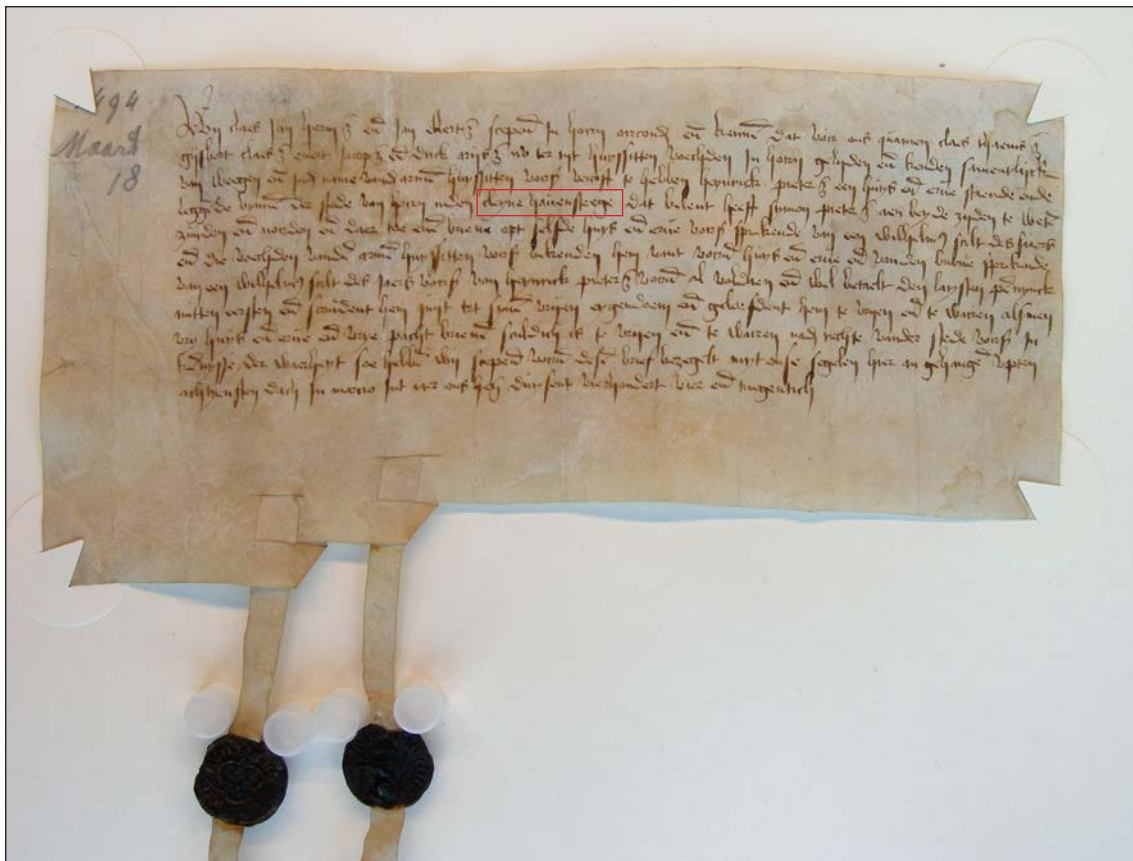 1494
Maart
18
Wy claes Jan heynz en Jan scepen In horn orconden en kennen dat voir ons quamen claes
gijsbert claesz evert en dirck nu ter tijt huyssitten vochden In horn gelyden en kenden samentlick
van wegen en huyssitten vors vercoft te hebben heynrick pietersz een huys en erve staende ende
leggende binnen der stede van horn inden cleyne havensteege dat belent heeft symon pietersz aen beyde zyden te weten
zuyden en norden en daer toe enen brieve opt selfde huys en erve vors sprekende van een wilhelmus scilt des jaers
en die vochden vanden huyssitten vors bekenden hem vant vorn huys en erve en vanden brieve sprekende
van een wilhelmus scilt des jaers vors van heynrick pietersz vorn al voldaen en wel betaelt den laetsten penninck
mitten eersten en scouden hem quyt tot vryen eygendoem en geloefden hem te vryen en te waren alsmen
vry huys en erve en vrye pacht brieven sculdich is te vryen en te waren nae rechte vander stede vors In
kennisse der waerheyt soe hebben wy scepen vorn desen brief bezegelt mit onse segelen hier an gehangen opten
achtiensten dach In marcio Int iaer ons heren duysent vierhondert vier en tnegentich